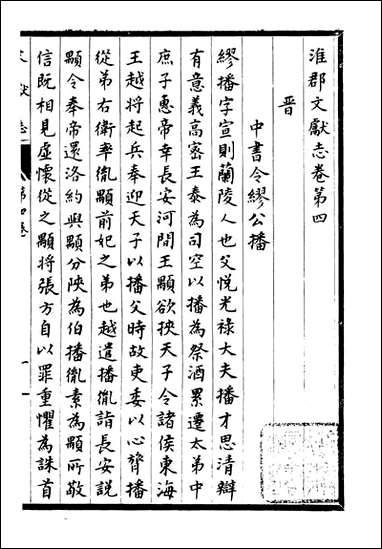 淮郡文獻志卷第四
晉
中書令繆公播
繆播字宣則蘭陵人也父悅光祿大夫播才思清辯
有意義高密王泰為司空以播為祭酒累遷太弟中
庶子惠帝幸長安河間王顒欲挾天子令諸侯東海
王越将起兵奉迎天子以播父時故吏委以心膂播
從弟右衛率胤顒前妃之弟也越遣播胤詣長安說
顒令奉帝還洛約與顒分陝為伯播胤素為顒所敬
信既相見虛懷從之顒将張方自以罪重懼為誅首